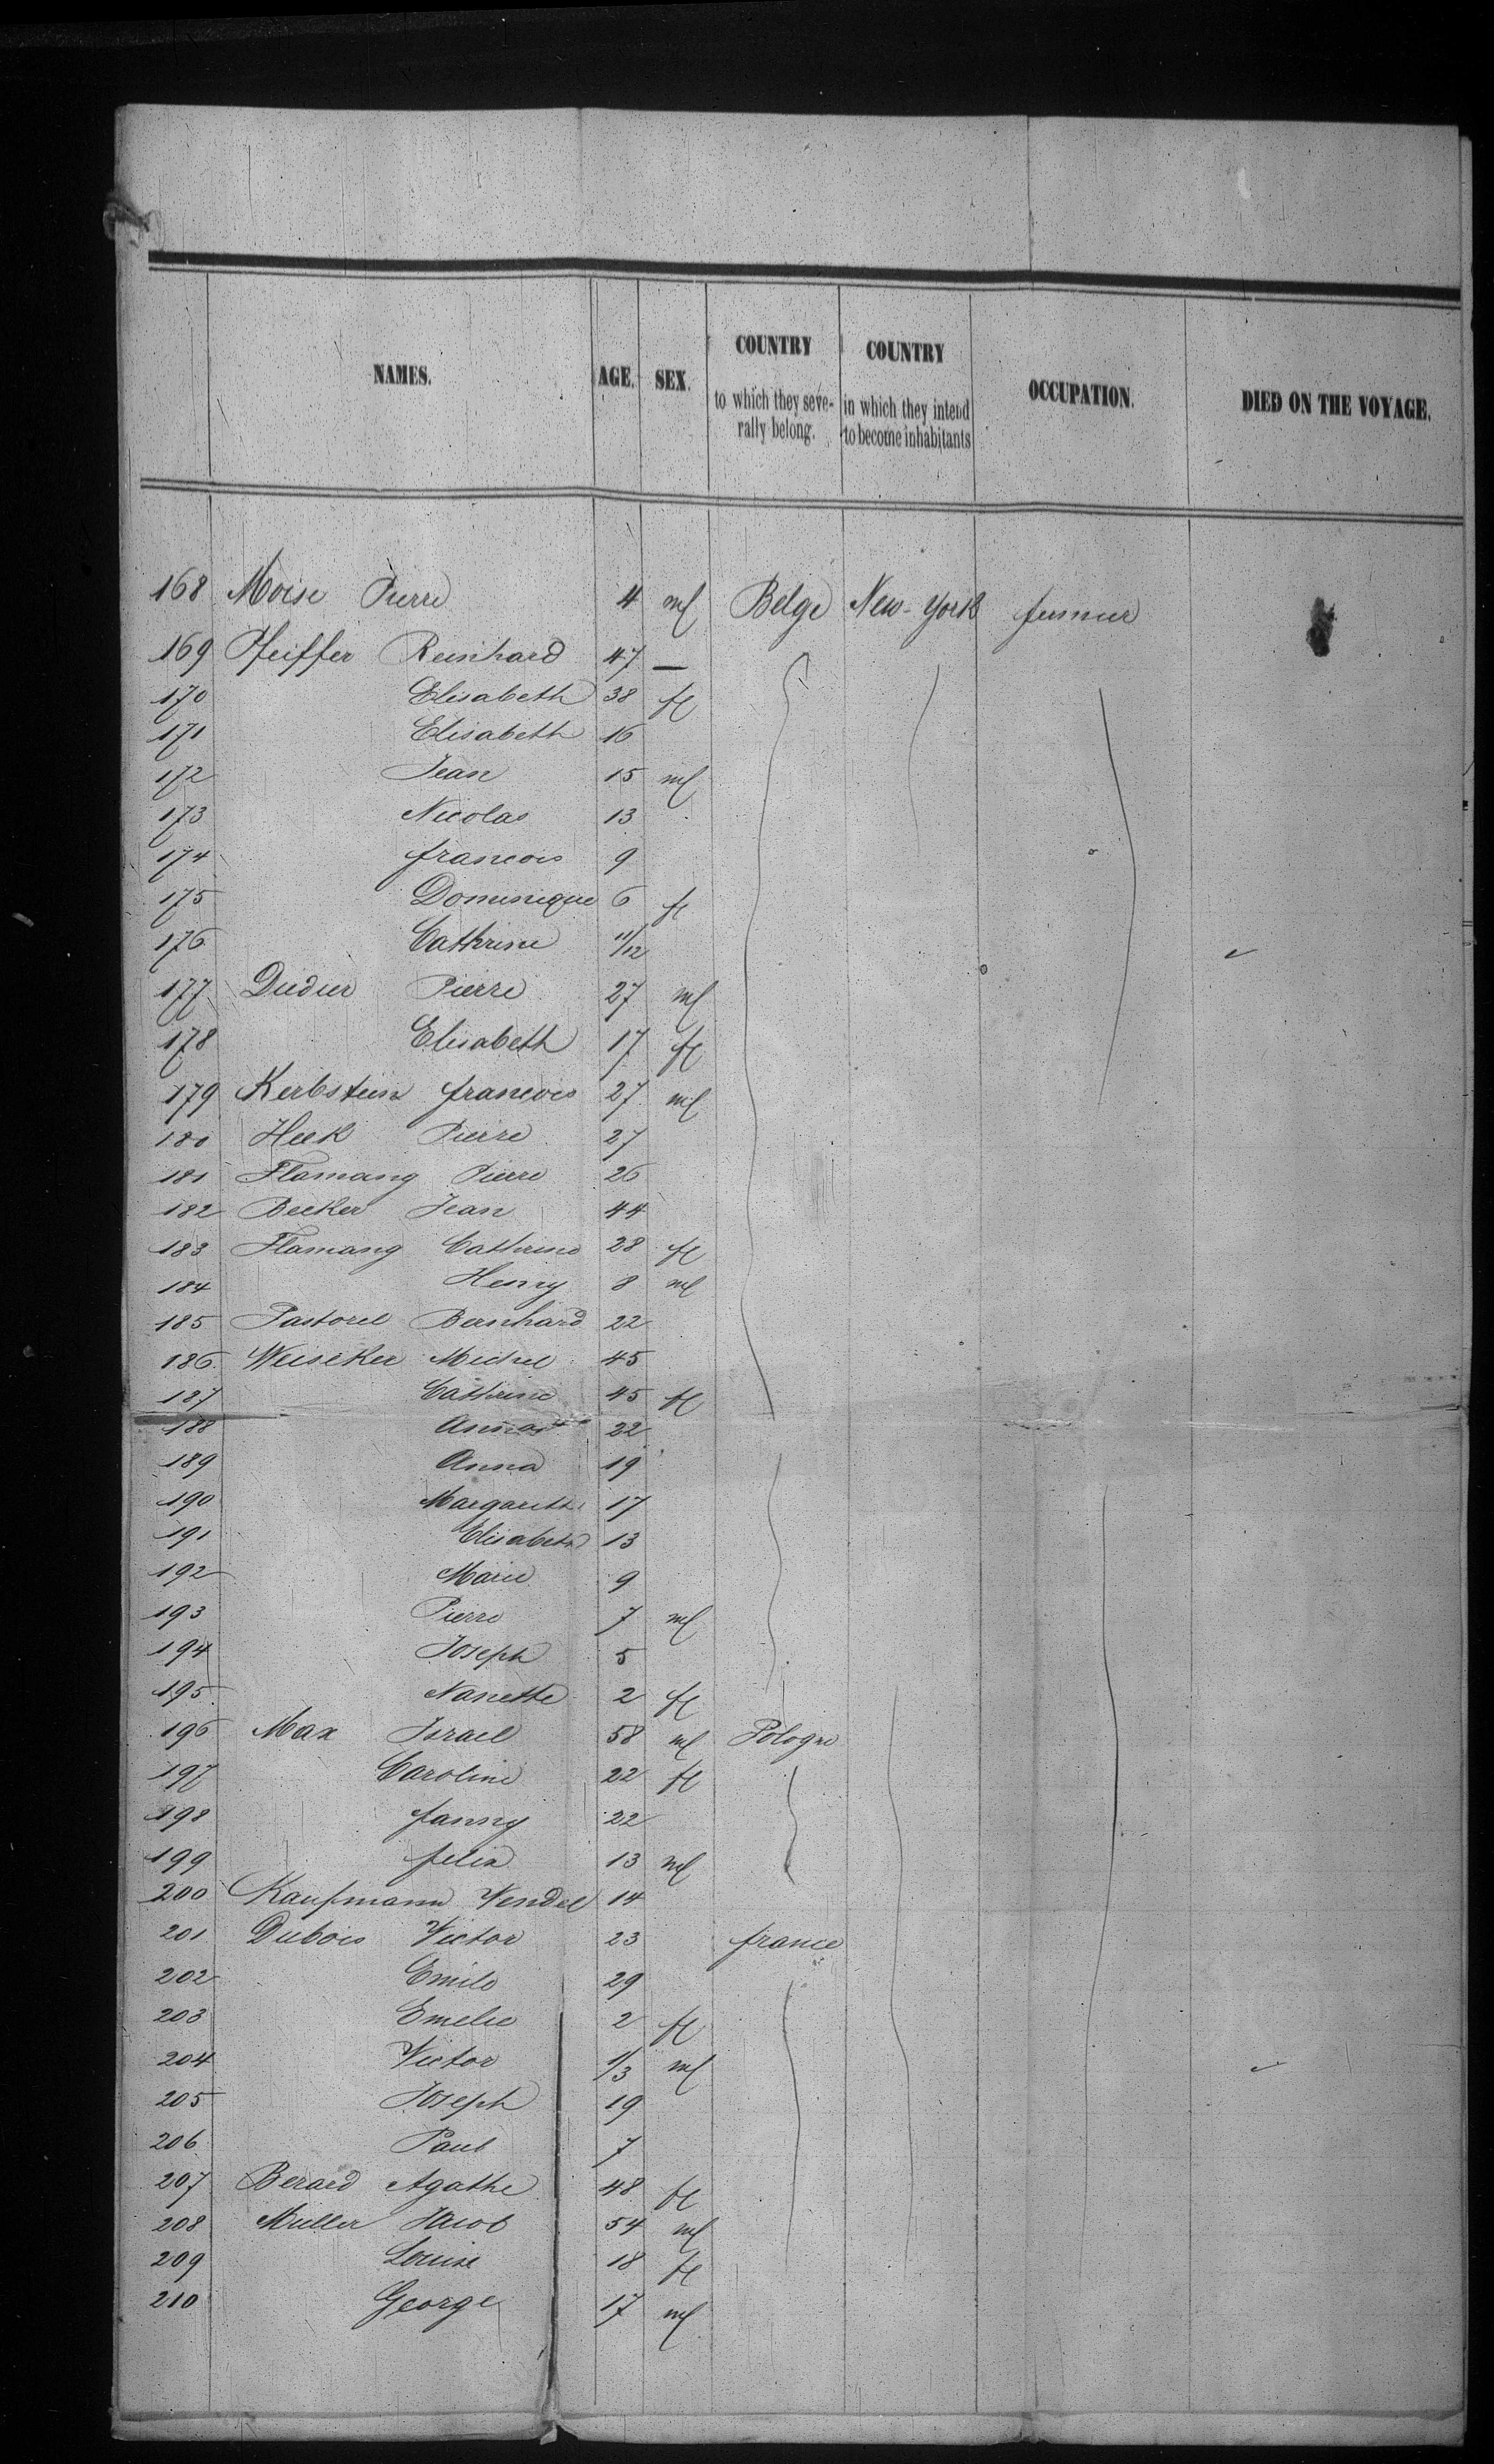 NAMES. AGE. SEX. COUNTRY to which they seve- rally belong. COUNTRY in which they intend to become inhabitants OCCUPATION. DIED ON THE VOYAGE.
168 Moise Pierre 4 ml Belge New-York
169 Pfeiffer Reinhard 47 —
170 Elisabeth 38 fl
171 Elisabeth 16
172 Jean 15 ml
173 Nicolas 13
174 francois 9
175 Dominique 6 fl
176 Cathrine 11/12
177 Didier Pierre 27 ml
178 Elisabeth 17 fl
179 Kerbstein francois 27 ml
180 Heck Pierre 27
181 Flamang Pierre 26
182 Becker Jean 44
183 Flamang Cathrine 28 fl
184 Henry 8 ml
185 Pastoret Bernhard 22
186 Michel 45
187 Cathrine 45 fl
188 22
189 Anna 19
190 Margareth 17
191 Elisabeth 13
192 Marie 9
193 Pierre 7 ml
194 Joseph 5
195 Nanette 2 fl
196 Max Israel 58 ml Pologne
197 Caroline 22 fl
198 fanny 22
199 felix 13 ml
200 Kaufmann Vendel 14
201 Dubois Victor 23 france
202 Emile 29
203 Emelie 2 fl
204 Victor 1/3 ml
205 Joseph 19
206 Paul 7
207 Berard Agathe 48 fl
208 Muller Jacob 54 ml
209 Louise 18 fl
210 George 17 ml